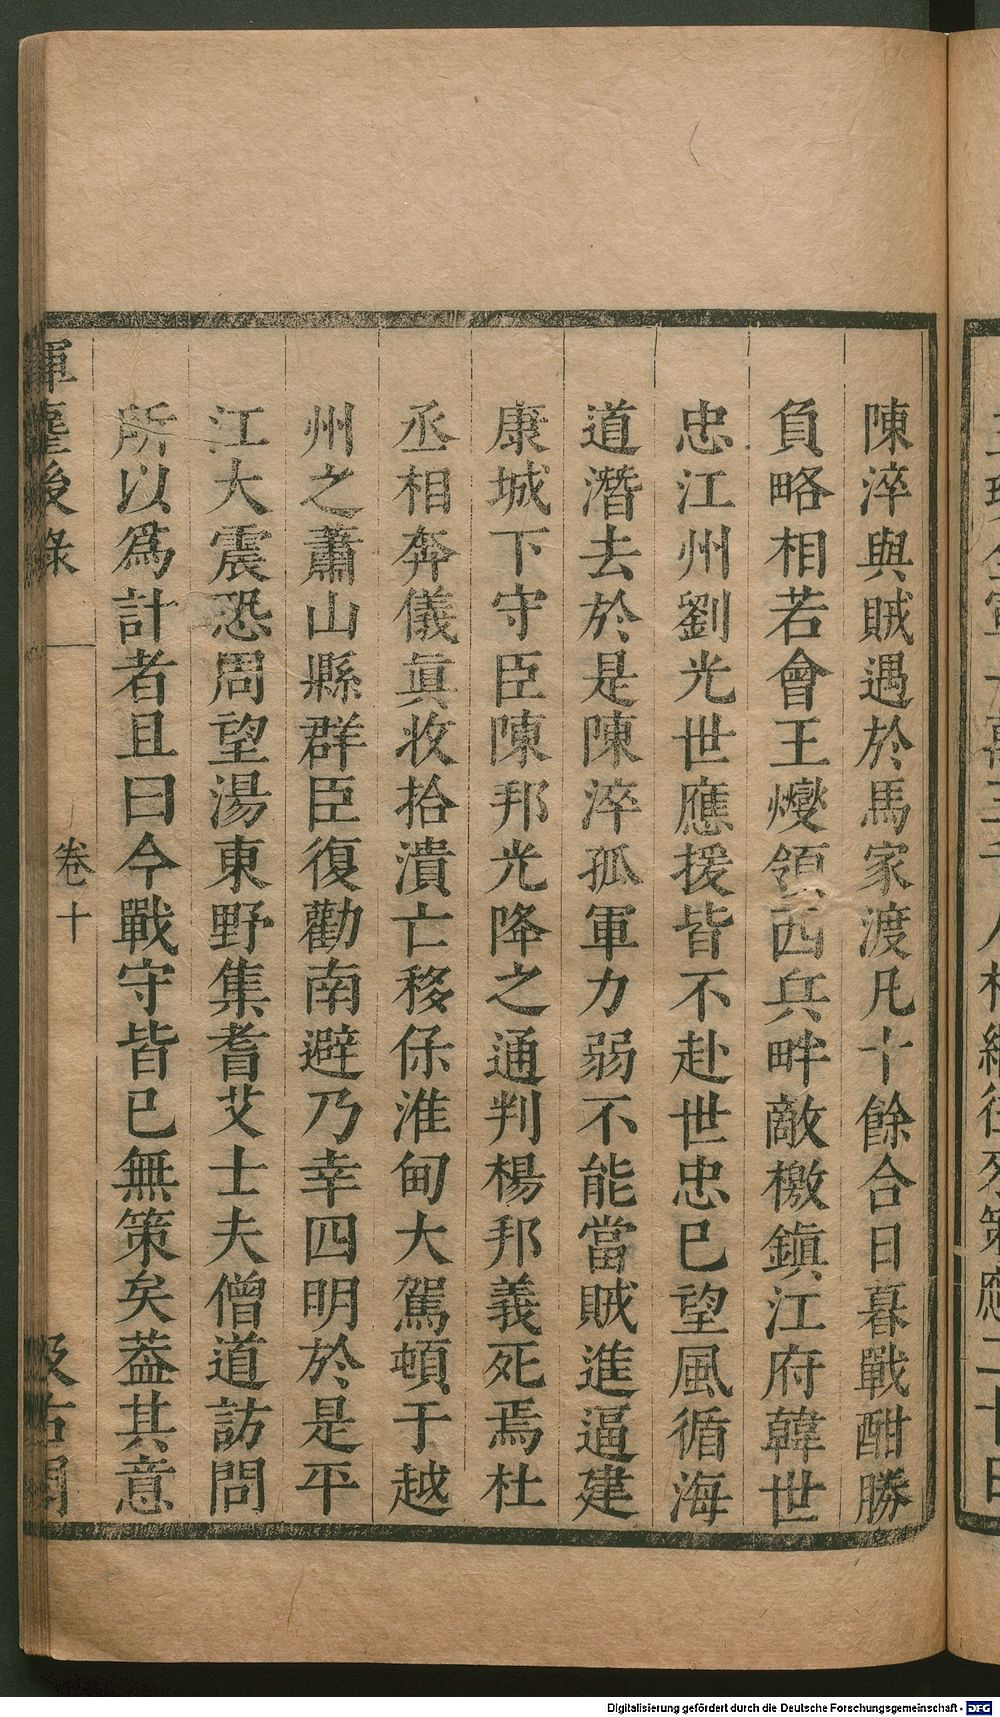 陳淬與賊遇於馬家渡凡十餘合日暮戰酣勝
負略相若會王燮領西兵畔敵檄鎮江府韓世
忠江州劉光世應援皆不赴世忠已望風循海
道潛去於是陳淬孤軍力弱不能當賊進逼建
康城下守臣陳邦光降之通判楊邦義死焉杜
丞相奔儀眞收拾潰亡移保淮甸大駕頓于越
州之蕭山縣群臣復勸南避乃幸四明於是平
江大震恐周望湯東野集耆艾士夫僧道訪問
所以爲計者且曰今戰守皆已無策矣葢其意
揮麈後錄
卷十
汲古閣
Digitalisierung gefördert durch die Deutsche Forschungsgemeinschaft - DFG